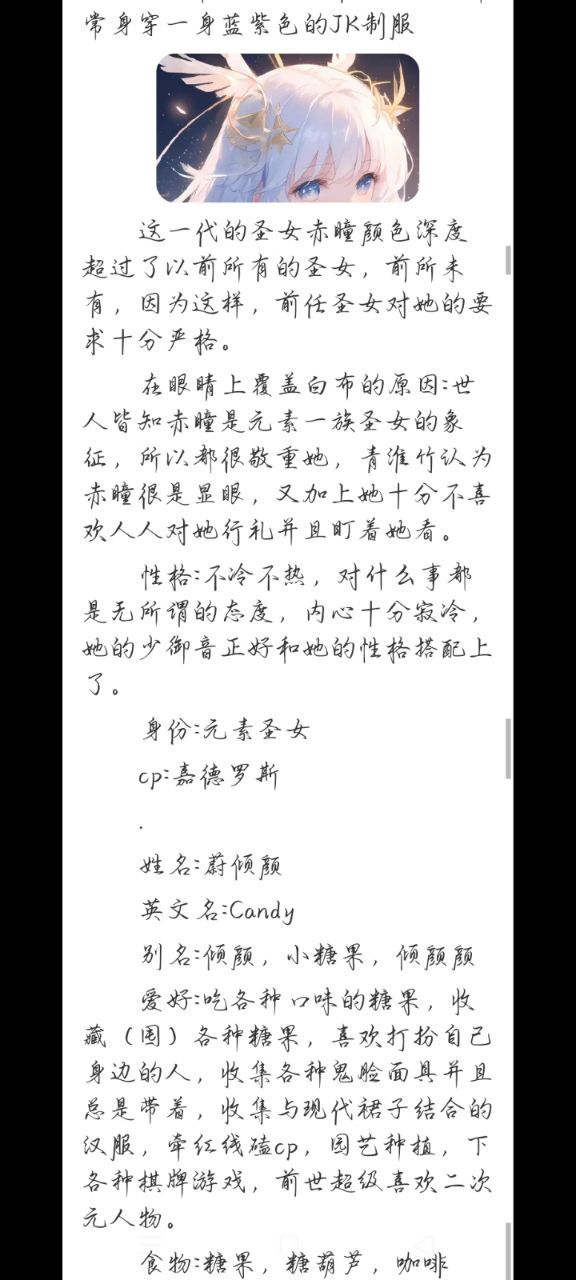 常身穿一身蓝紫色的JK制服
这一代的圣女赤瞳颜色深度
超过了以前所有的圣女，前所未
有，因为这样，前任圣女对她的要
求十分严格。
在眼睛上覆盖白布的原因:世
人皆知赤瞳是元素一族圣女的象
征，所以都很敬重她，青淮竹认为
赤瞳很是显眼，又加上她十分不喜
欢人人对她行礼并且盯着她看。
性格:不冷不热，对什么事都
是无所谓的态度，内心十分寂冷，
她的少御音正好和她的性格搭配上
了。
身份:元素圣女
cp:嘉德罗斯
.
姓名:蔚倾颜
英文名:Candy
别名:倾颜，小糖果，倾颜颜
爱好:吃各种口味的糖果，收
藏（囤）各种糖果，喜欢打扮自己
身边的人，收集各种鬼脸面具并且
总是带着，收集与现代裙子结合的
汉服，牵红线磕cp，园艺种植，下
各种棋牌游戏，前世超级喜欢二次
元人物。
食物:糖果，糖葫芦，咖啡